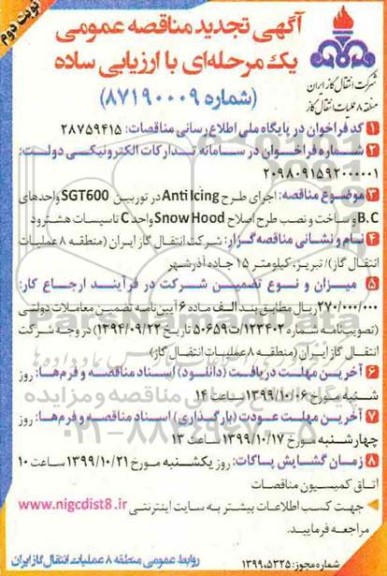 نوبت دوم
آگهی تجدید مناقصه عمومی
یک مرحله‌ای با ارزیابی ساده
(شماره ۸۷۱۹۰۰۰۹)
شرکت انتقال گاز ایران
منطقه ۸ عملیات انتقال گاز
۱ کد فراخوان در پایگاه ملی اطلاع رسانی مناقصات: ۲۸۷۵۹۴۱۵
۲ شماره فراخوان در سامانه تدارکات الکترونیکی دولت:
۲۰۹۸۰۹۱۵۹۲۰۰۰۰۰۱
۳ موضوع مناقصه: اجرای طرح Anti Icing در توربین SGT600 واحدهای
B.C و ساخت و نصب طرح اصلاح Snow Hood واحد C تاسیسات هشترود
۴ نام و نشانی مناقصه گزار: شرکت انتقال گاز ایران (منطقه ۸ عملیات
انتقال گاز)/ تبریز، کیلومتر ۱۵ جاده آذرشهر
۵ میزان و نوع تضمین شرکت در فرآیند ارجاع کار:
۲۷۰/۰۰۰/۰۰۰ ریال مطابق بند الف ماده ۶ آیین نامه تضمین معاملات دولتی
(تصویب‌نامه شماره ۱۲۳۴۰۲/ت۵۰۶۵۹ تاریخ ۱۳۹۴/۰۹/۲۲) در وجه شرکت
انتقال گاز ایران (منطقه ۸ عملیات انتقال گاز)
۶ آخرین مهلت دریافت (دانلود) اسناد مناقصه و فرم‌ها: روز
شنبه مورخ ۱۳۹۹/۱۰/۰۶ ساعت ۱۴
۷ آخرین مهلت عودت (بارگذاری) اسناد مناقصه و فرم‌ها: روز
چهارشنبه مورخ ۱۳۹۹/۱۰/۱۷ ساعت ۱۳
۸ زمان گشایش پاکات: روز یکشنبه مورخ ۱۳۹۹/۱۰/۲۱ ساعت ۱۰
اتاق کمیسیون مناقصات
جهت کسب اطلاعات بیشتر به سایت اینترنتی www.nigcdist8.ir
مراجعه فرمایید.
شماره مجوز: ۱۳۹۹،۵۳۲۵
روابط عمومی منطقه ۸ عملیات انتقال گاز ایران